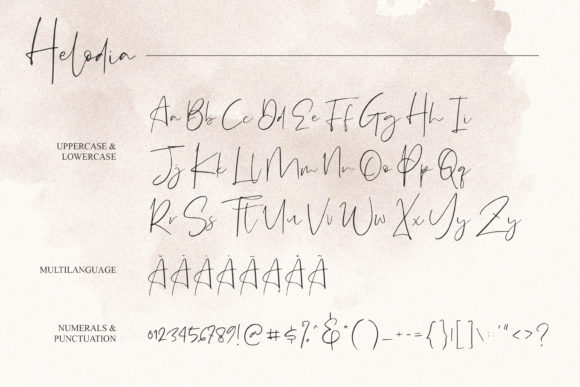 Helodia
UPPERCASE &
LOWERCASE
Aa Bb Cc Dd Ee Ff Gg Hh Ii
Jj Kk Ll Mm Nn Oo Pp Qq
Rr Ss Tt Uu Vv Ww Xx Yy Zz
MULTILANGUAGE
NUMERALS &
PUNCTUATION
0123456789!@#$%^&*()_+-={}|[]\:;'"<>?